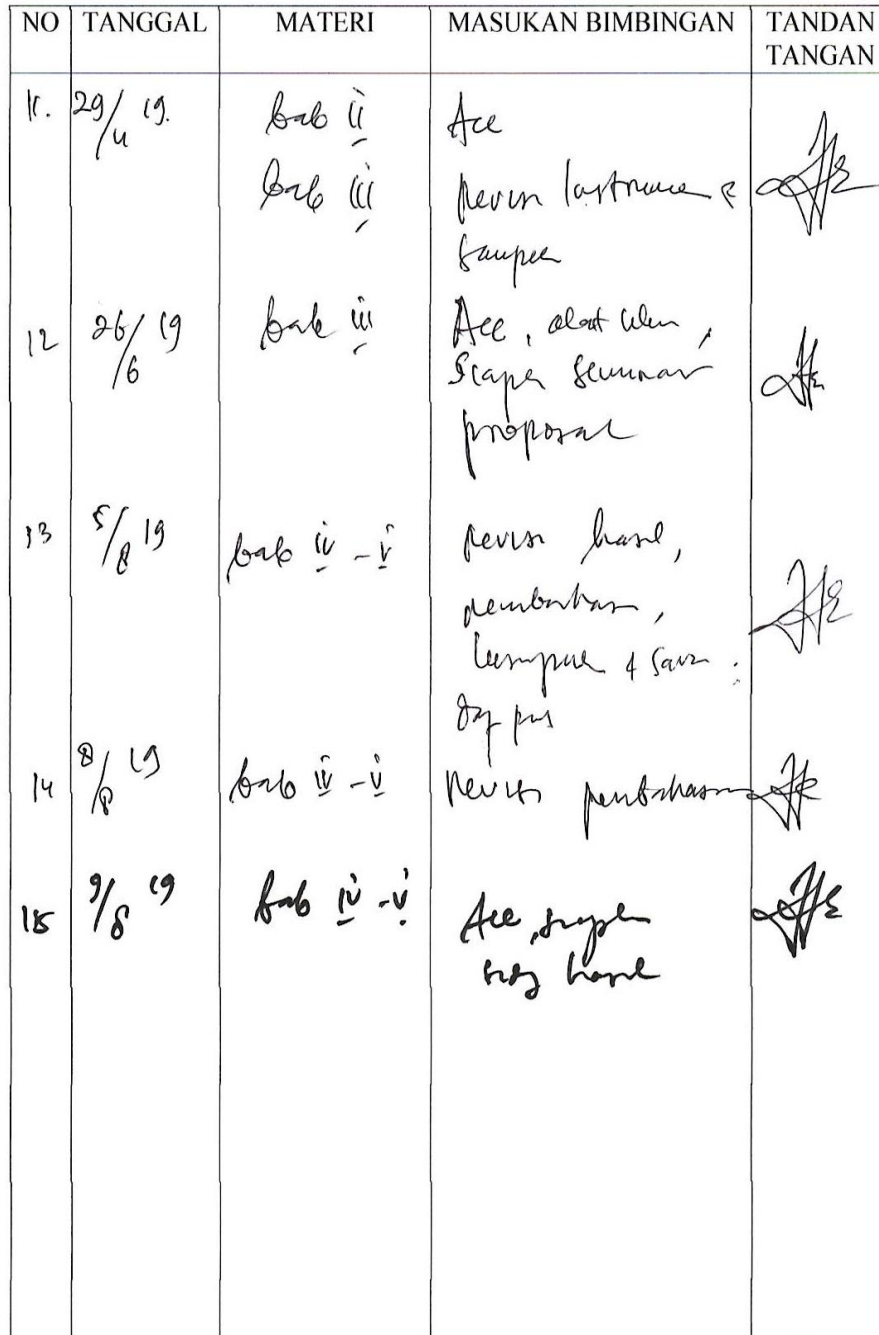 NO TANGGAL MATERI MASUKAN BIMBINGAN TANDAN TANGAN
11. 29/4 19. bab ii Acc
bab iii revisi instrumen &
sampel
12 26/6 19 bab iii Acc,
siapkan seminar
proposal
13 5/8 19 bab iv - v revisi hasil,
pembahasan,
kesimpulan & saran.
daf pus
14 8/8 19 bab iv - v revisi pembahasan
15 9/8 19 bab iv - v Acc, siapkan
sidang hasil